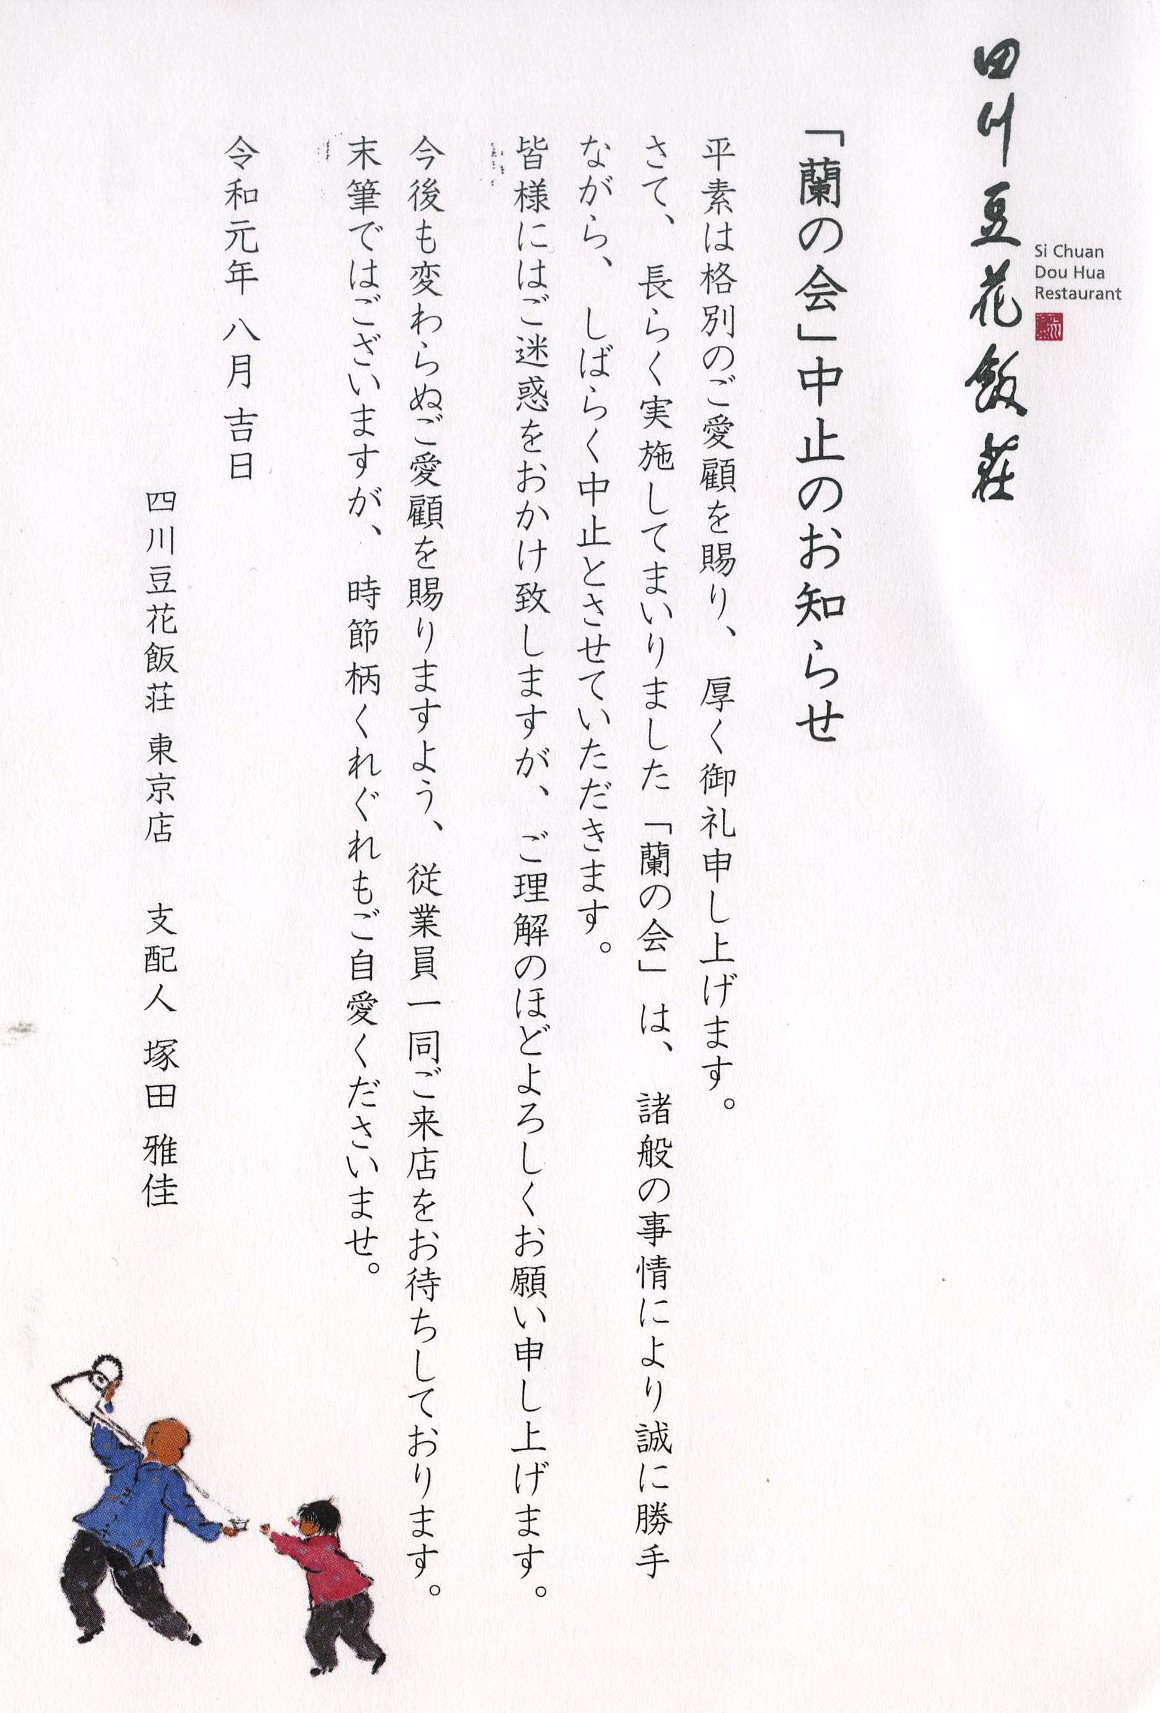 四川豆花飯荘
Si Chuan
Dou Hua
Restaurant
「蘭の会」中止のお知らせ
平素は格別のご愛顧を賜り、厚く御礼申し上げます。
さて、長らく実施してまいりました「蘭の会」は、諸般の事情により誠に勝手
ながら、しばらく中止とさせていただきます。
皆様にはご迷惑をおかけ致しますが、ご理解のほどよろしくお願い申し上げます。
今後も変わらぬご愛顧を賜りますよう、従業員一同ご来店をお待ちしております。
末筆ではございますが、時節柄くれぐれもご自愛くださいませ。
令和元年 八月 吉日
四川豆花飯荘 東京店 支配人 塚田 雅佳